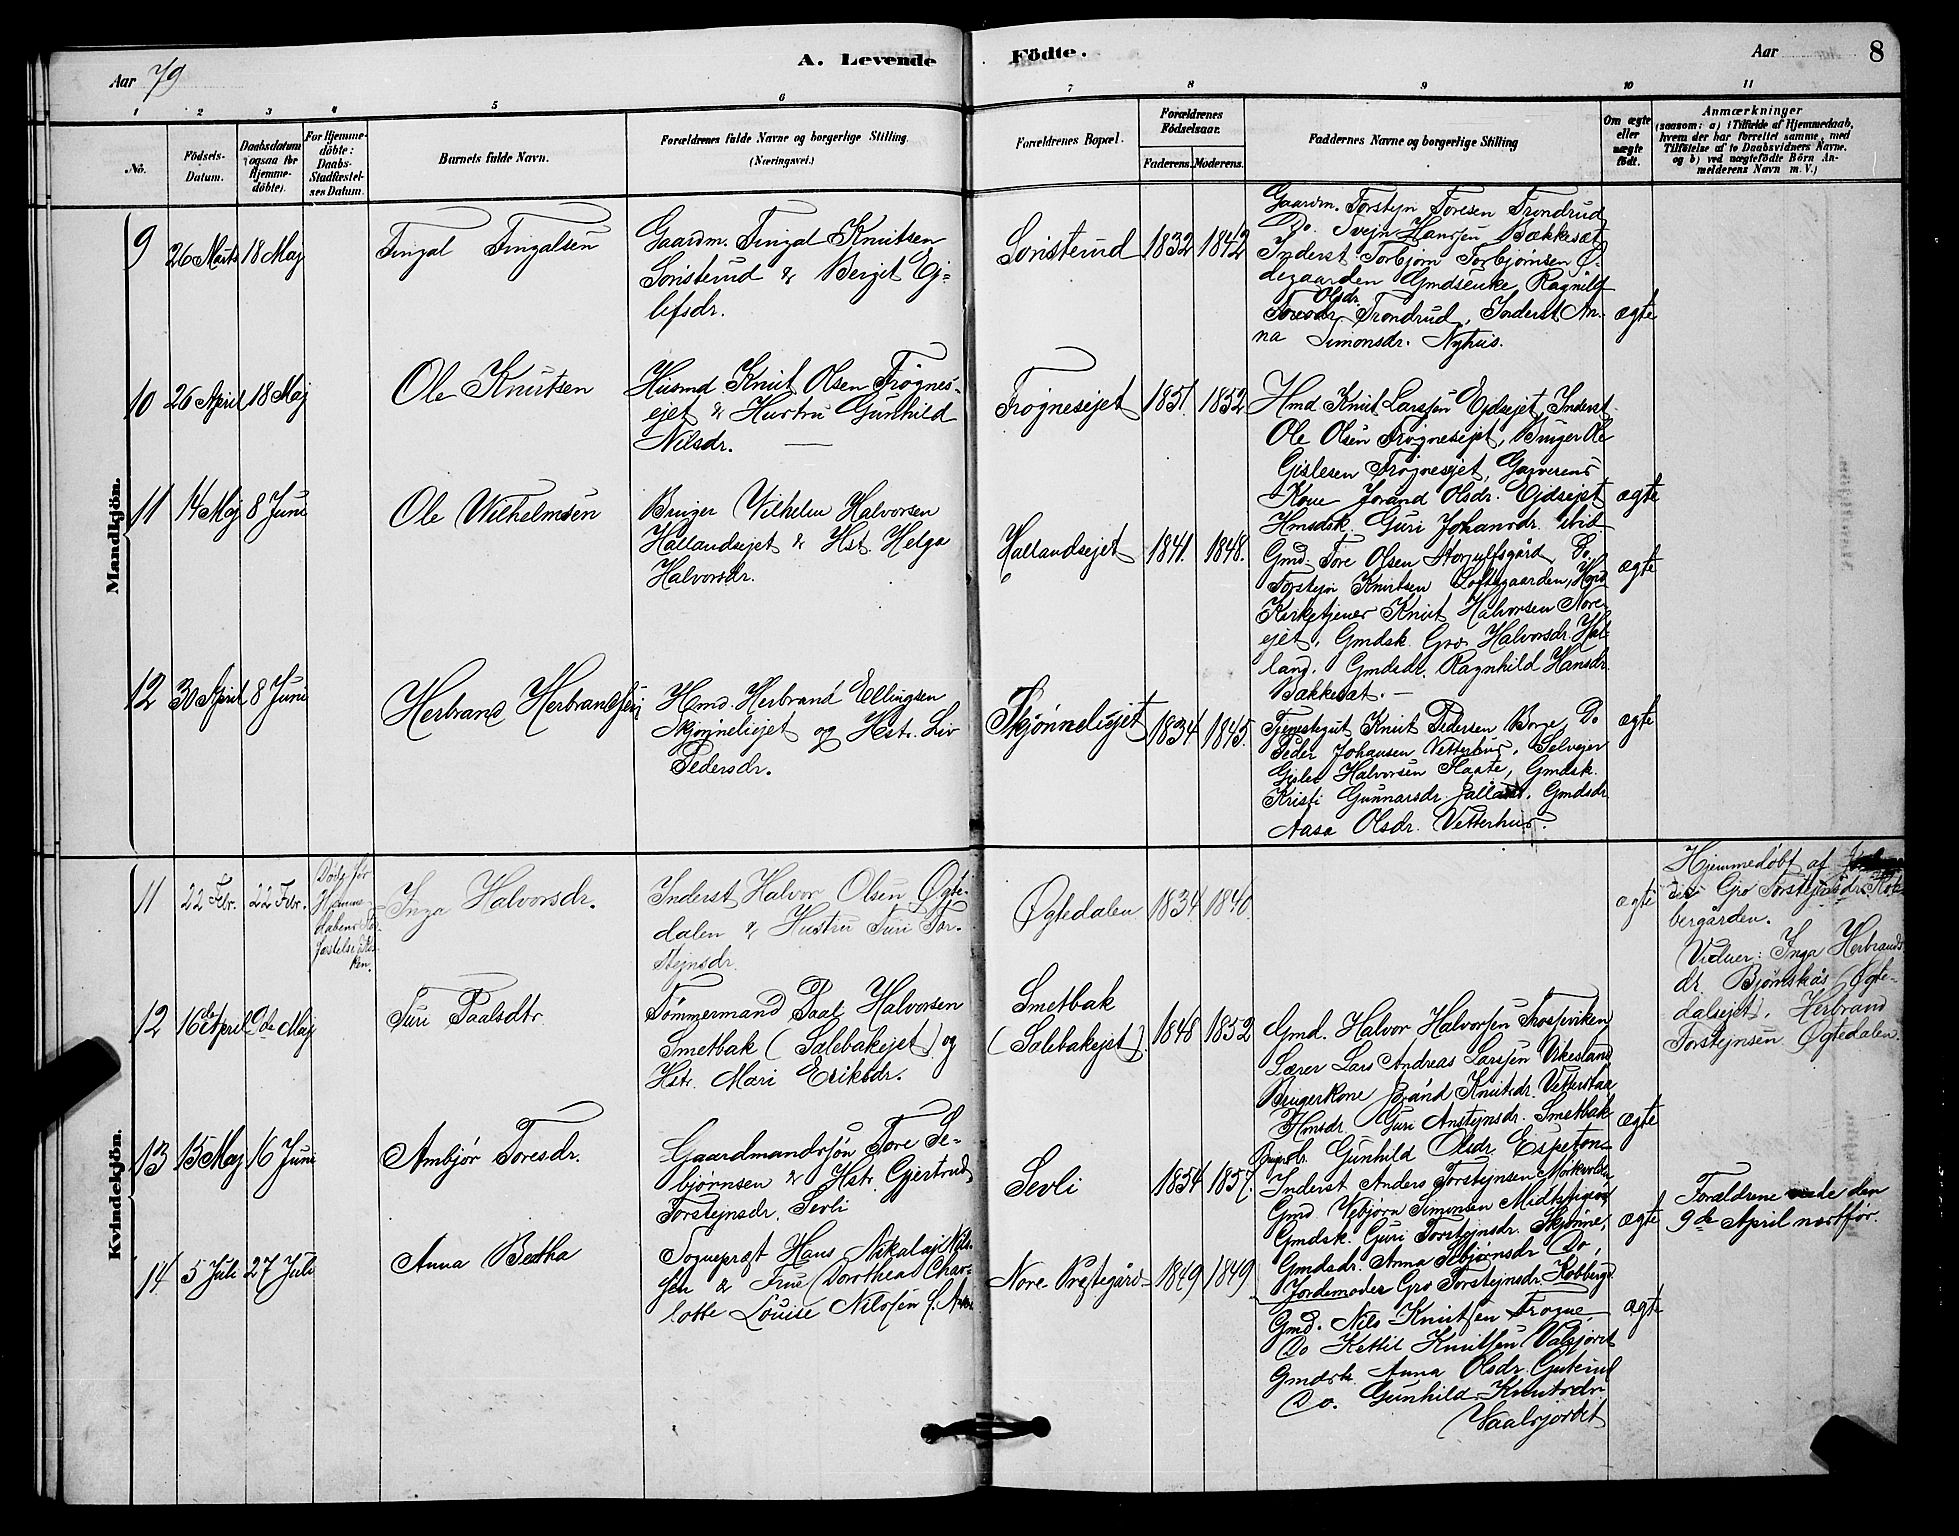 Aar 79
A. Levende
Födte.
Aar
8
1 2 3 4 5 6 7 8 9 10 11
No.
Födsels-Datum.
Daabsdatum (ogsaa for Hjemme-döbte).
For Hjemme-döbte: Daabs-Stadfæstel-ses Datum.
Barnets fulde Navn.
Forældrenes fulde Navne og borgerlige Stilling (Næringsvei.)
Forældrenes Bopæl.
Forældrenes Födselsaar.
Faderens. Moderens.
Faddernes Navne og borgerlige Stilling
Om ægte eller uægte födt.
Anmærkninger
(saasom: a) i Tilfælde af Hjemmedaab,
hvem der har forrettet samme, med
Tilföielse af to Daabsvidners Navne.
og b) ved uægtefödte Börn An-
melderens Navn m. V.)
Mandkjön.
9 26 Marts 18 Maj
Fingal Fingalsen
Gaardm. Fingal Knutsen
Sonsterud & Berget Ej-
lifsdr.
Sonsterud 1832 1842
Gaardm. Torstejn Toresen Trondrud
Do. Svejn Hanssen Bækkesæt
Inderst Torbjørn Torbjørnsen Ø-
degaarden Gmdsenke Ragnild
Olsdr.
Toresdr. Trondrud, Inderst An-
na Simonsdr. Nyhus.
ægte
10 26 April 18 Maj
Ole Knutsen
Husmd. Knut Olsen Frøgnes-
ejet & Hustru Gunhild
Nilsdr.
Frøgnesejet 1851. 1852
Hmd Knut Larssen Ejdsejet, Inderst
Ole Olsen Frøgnesejet, Bruger Ole
Gislesen Frøgnesejet, Garverens
Kone Jorand Olsdr. Ejdsejet
Hmsdsk. Guri Johansdr. ibid
ægte
11 14 Maj 8 Juni
Ole Vilhelmsen
Bruger Vilhelm Halvorsen
Hallandsejet & Hst. Helga
Halvorsdr.
Hallandsejet 1841. 1848.
Gmd. Tore Olsen Storjulfsgård, Do.
Torstejn Knutsen Loftsgaarden, Hmd
Kirketjener Knut Halvorsen Nore-
ejet, Gmdsk. Gro Halvorsdr. Hal-
land. Gmdsdt. Ragnhild Hansdr.
Bakkesat.
ægte
12 30 April 8 Juni
Herbrand Herbrandsen
Hmd. Herbrand Ellingsen
Skjønneliejet og Hst. Liv
Pedersdr.
Skjønneliejet 1834 1845.
Tjenestegut Knut Pedersen Borge, Do
Peder Johansen Vetterhus, Selvejer
Gislec Halvorsen Slaate, Gmdsk.
Kristi Gunnarsdr. Jalland, Gmdsdr
Aasa Olsdr. Vetterhus.
ægte
Kvindekjön.
11 22 Febr. 22 Febr.
Døde før
Hjemme-
Inga Halvorsdr.
Inderst Halvor Olsen Øgte-
dalen & Hustru Turi Tor-
stejnsdr.
Øgtedalen 1834 1840.
ægte
Hjemmedøbt af
Gro Torstejnsdr. Kob-
bergården.
Vidner: Inga Herbrands-
dr. Bjørnskås (Øgte-
dalsejet), Herbrand
Torstejnsen Øgtedalen.
12 16de April 9de Maj
Turi Paalsdtr
Tømmermand Paal Halvorsen
Smetbak (Salebakejet) og
Hst. Mari Eriksdr.
Smetbak
(Salebakejet). 1848 1852
Gmd. Halvor Halvorsen Trossviken
Lærer Lars Andreas Larssen Virkesland
Brugerkone Brånd Knutsdr. Vetterstaa
Hmsdr. Guri Anstejnsdr. Smetbak
Gunhild Olsdr. Espeton
ægte
13 15 Maj 16 Juni
Ambjør Toresdr.
Gaardmandssøn Tore Se-
bjørnsen & Hst. Gjertrud
Torstejnsdr. Sevli
Sevli 1854 1857.
Inderst Anders Torstejnsen Morkvold
Gmd. Vebjørn Simonsen Midtstigord
Gmdsk. Guri Torstejnsdr. Skjønne,
Gmdsdr. Anna Sebjørnsdr Do,
Jordemoder Gro Torstejnsdr. Kobberg.
ægte
Forældrene viede den
9de April næstfør.
14 5 Juli 27 Juli
Anna Beatha
Sognepræst Hans Nikolaj Nils-
sen & Frue Dorothea Char-
lotte Louise Nilssen f.
Nore Præstegård 1849 1849.
Gmd. Nils Knutsen Frogne,
Do Kettil Knutsen Valsjordt
Gmdsk. Anna Olsdr. Guterud
Do. Gunhild Knutsdr.
Vaalsjordet
ægte